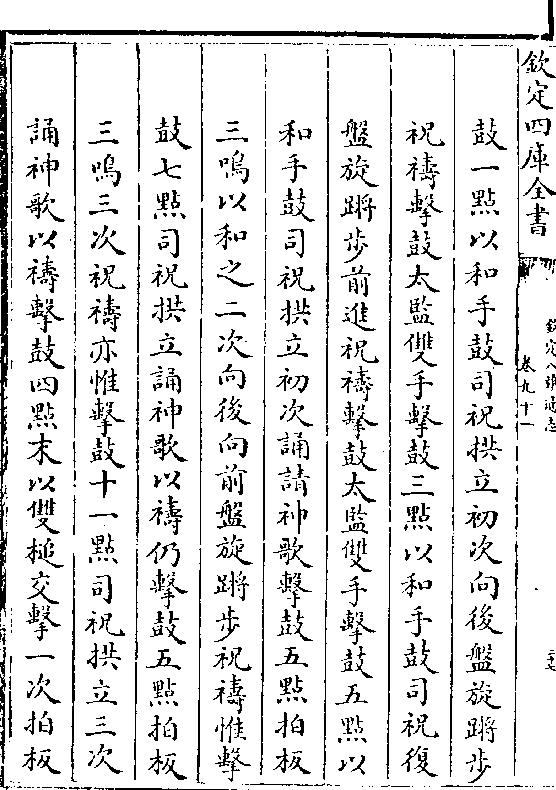 欽定四庫全書
欽定八旗通志
卷九十一
鼓一點以和手鼓司祝拱立初次向後盤旋蹡步
祝禱擊鼓太監雙手擊鼓三點以和手鼓司祝復
盤旋蹡步前進祝禱擊鼓太監雙手擊鼓五點以
和手鼓司祝拱立初次誦請神歌擊鼓五點拍板
三鳴以和之二次向後向前盤旋蹡步祝禱惟擊
鼓七點司祝拱立誦神歌以禱仍擊鼓五點拍板
三鳴三次祝禱亦惟擊鼓十一點司祝拱立三次
誦神歌以禱擊鼓四點末以雙槌交擊一次拍板